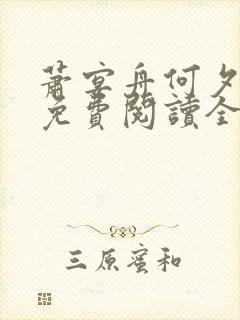 蕭宴舟何夕
免費閱讀全
三原蜜和